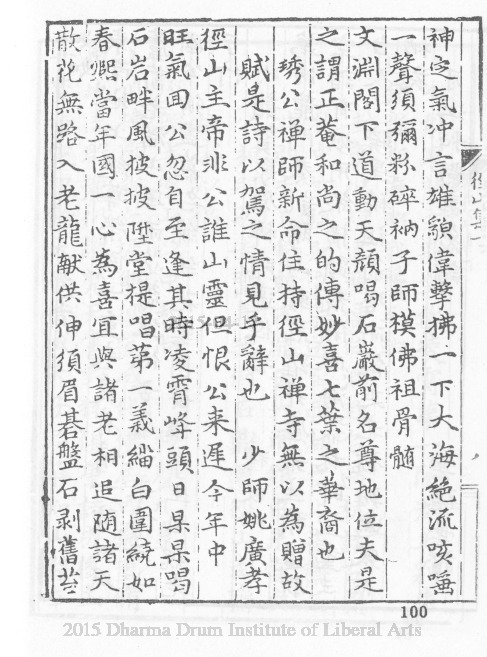 神定氣冲言雄貌偉擊拂一下大海絕流咳唾
一聲須彌粉碎衲子師摸佛祖骨髓
文淵閣下道動天顔喝石巖前名尊地位夫是
之謂正菴和尚之的傳妙喜七葉之華裔也
琇公禅師新命住持徑山禅寺無以為贈故
賦是詩以駕之情見乎辭也 少師姚廣孝
徑山主帝非公誰山靈但恨公来遲今年中
旺氣回公忽自至逢其時凌霄峰頭日杲杲喝
石岩畔風披披陞堂提唱苐一義緇白圍繞如
春熈當年國一心為喜宜與諸老相追随諸天
散花無路入老龍献供伸須眉碁盤石剥舊苔
徑山集一
100
2015 Dharma Drum Institute of Liberal Arts